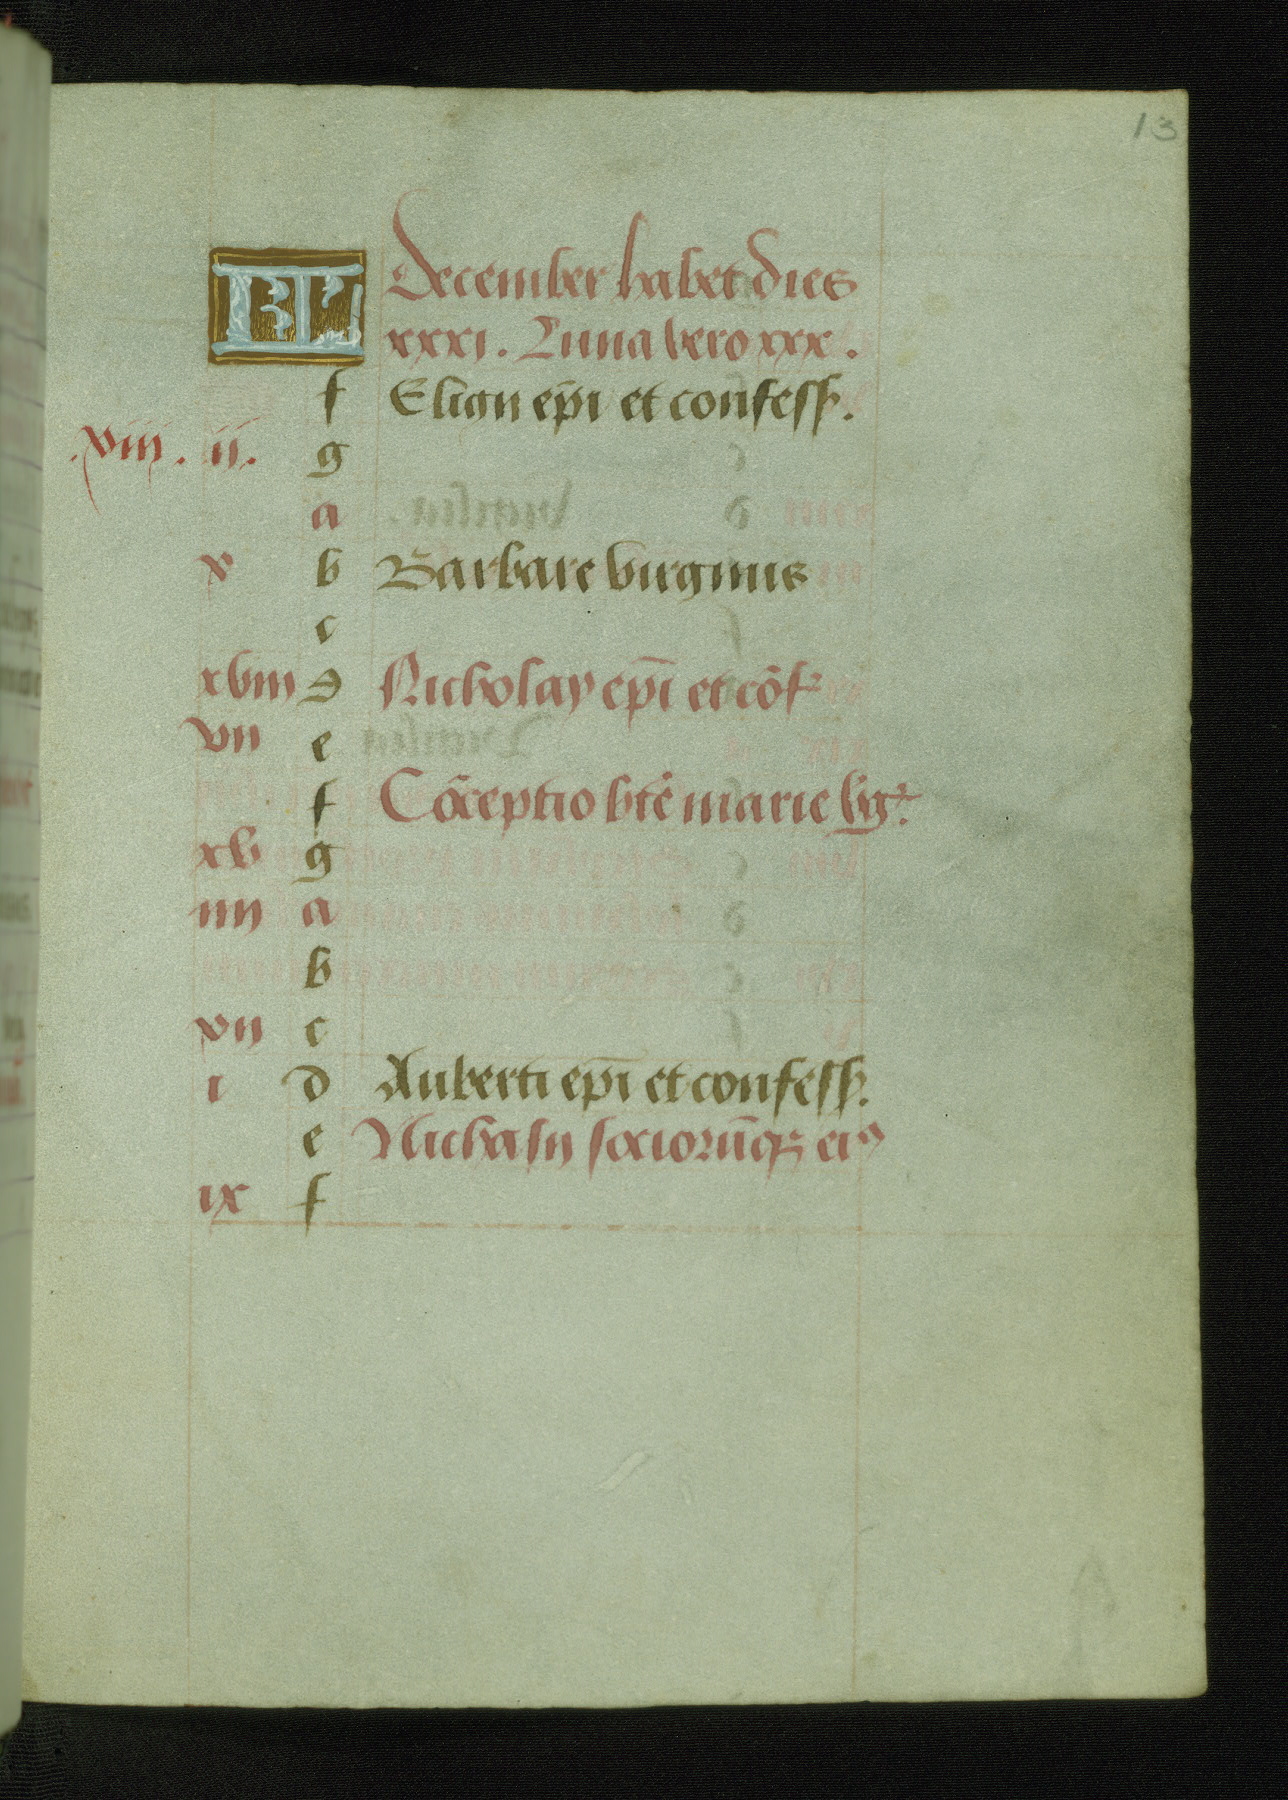 13
KL December habet dies
xxxi. Luna vero xxx.
f Eligii ep̄i et confeſſ.
.viii. ii. g
a
x b Barbare virginis
c
xviii d Nicholay ep̄i et cōf
vii e
f Cōceptio btē marie vg.
xv g
iiii a
b
xii c
i d Auberti ep̄i et confeſſ.
e Nichasii socioruq ei9
ix f